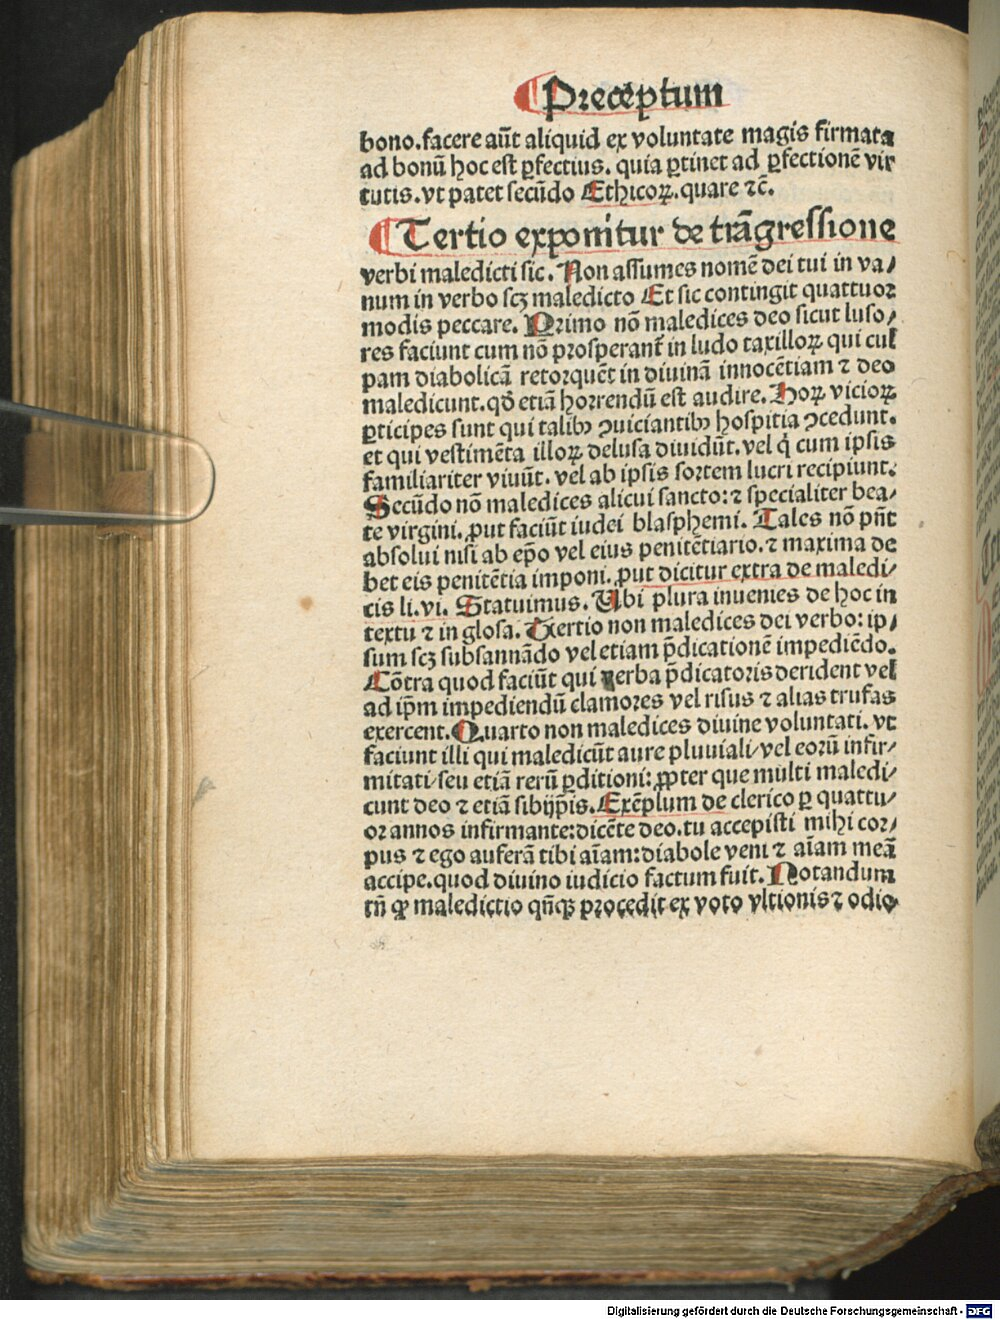 ¶ Preceptum
bono.facere aũt aliquid ex voluntate magis firmata
ad bonũ hoc est ꝑfectius. quia ꝑtinet ad ꝑfectionẽ vir
tutis.vt patet secũdo Ethicoꝝ.quare ⁊c̃.
¶ Tertio exponitur de trãgressione
verbi maledicti sic. Non assumes nomẽ dei tui in va/
num in verbo scꝫ maledicto Et sic contingit quattuor
modis peccare. Primo nõ maledices deo sicut luso/
res faciunt cum nõ prosperant̃ in ludo taxilloꝝ qui cul
pam diabolicã retorquẽt in diuinã innocẽtiam ⁊ deo
maledicunt.qð etiã horrendũ est audire. Hoꝝ vicioꝝ
ꝑticipes sunt qui talibꝰ ꝯuiciantibꝰ hospitia ꝯcedunt.
et qui vestimẽta illoꝝ delusa diuidũt.vel q̇ cum ipsis
familiariter viuũt. vel ab ipsis sortem lucri recipiunt.
Secũdo nõ maledices alicui sancto:⁊ specialiter bea/
te virgini.ꝓut faciũt iudei blasphemi. Tales nõ pñt
absolui nisi ab ep̃o vel eius penitẽtiario.⁊ maxima de
bet eis penitẽtia imponi.ꝓut dicitur extra de maledi/
cis li.vi. Statuimus. Ubi plura inuenies de hoc in
textu ⁊ in glosa. Tertio non maledices dei verbo: ip/
sum scꝫ subsannãdo vel etiam p̃dicationẽ impediẽdo.
Cõtra quod faciũt qui verba p̃dicatoris derident vel
ad ip̃m impediendũ clamores vel risus ⁊ alias trufas
exercent. Quarto non maledices diuine voluntati. vt
faciunt illi qui maledicũt aure pluuiali/vel eorũ infir/
mitati/seu etiã rerũ ꝑditioni: ꝓpter que multi maledi/
cunt deo ⁊ etiã sibijp̃is. Exẽplum de clerico ꝑ quattu/
or annos infirmante:dicẽte deo.tu accepisti mihi cor/
pus ⁊ ego auferã tibi aĩam:diabole veni ⁊ aĩam meã
accipe.quod diuino iudicio factum fuit. Notandum
tñ ꝙ maledictio qñqꝫ procedit ex voto vltionis ⁊ odio
Digitalisierung gefördert durch die Deutsche Forschungsgemeinschaft - DFG